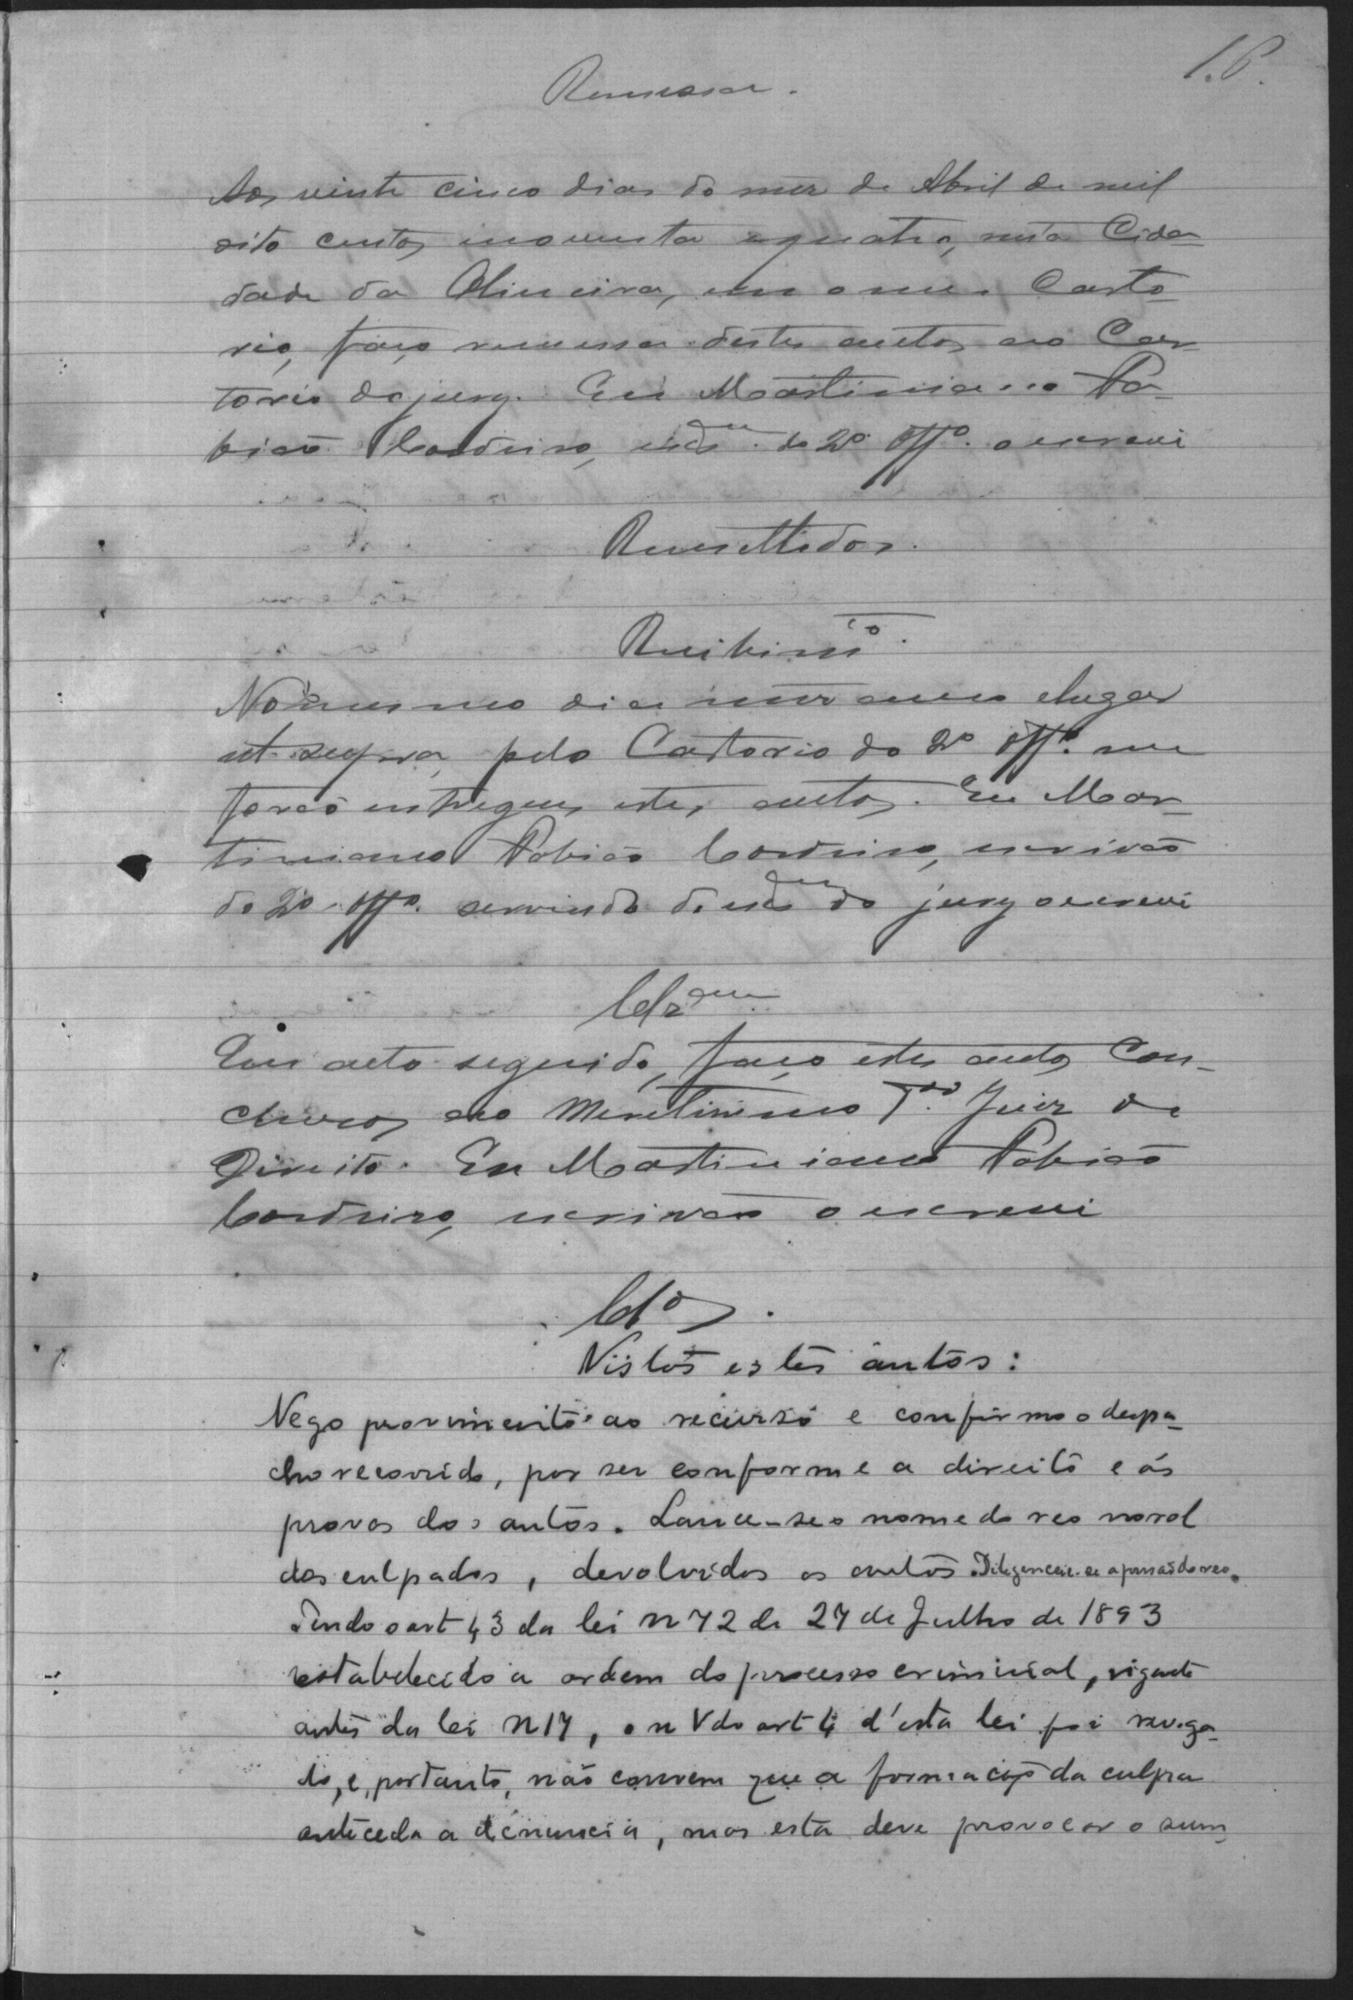 16.
Remessa.
Aos vinte cinco dias do mez de Abril de mil
oito centos, noventa e quatro, nesta Cida-
dade da Oliveira, em o meu Carto-
rio, faço remessa destes autos ao Car-
torio do jury. Eu Martiniano
Cordeiro, do 2º Offº. o escrevi
Remettidos.
Recibimtº.
No mesmo dia mez anno e lugar
ut supra, pelo Cartorio do 2º Offº. me
forão entregues estes autos. Eu Mar-
tiniano Cordeiro, escrivão
do 2º Offº. servindo do jury o escrevi
Clzam
Em acto seguido, faço estes autos Con-
clusos ao Meretissimo Juiz de
Direito. Eu Martiniano
Cordeiro, escrivão o escrevi
Clos.
Vistos estes autos:
Nego provimento ao recurso e confirmo o despa-
cho recorrido, por ser conforme a direito e ás
provas dos autos. Lance-se o nome do reo no rol
dos culpados, devolvidos os autos. Diligencie-se a prisão do reo.
Tendo o art 43 da lei n 72 de 27 de Julho de 1893
restabelecido a ordem do processo criminal, vigente
antes da lei n 17, o n V do art 4 d'esta lei foi revoga-
do, e, portanto, não convem que a formação da culpa
anteceda a denuncia, mas esta deve provocar o sum-